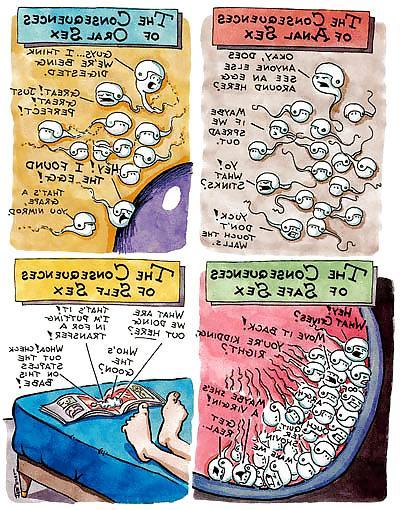 THE CONSEQUENCES
OF ANAL SEX
OKAY, DOES
ANYONE ELSE
SEE AN EGG
AROUND HERE?
MAYBE
IF WE
SPREAD
OUT.
YO!
WHAT
STINKS?
YUCK!
DON'T
TOUCH THE
WALLS.
THE CONSEQUENCES
OF ORAL SEX
GUYS... I THINK
WE'RE BEING
DIGESTED.
GREAT! JUST
GREAT!
PERFECT!
HEY! I FOUND
THE EGG!
THAT'S A
GRAPE,
YOU NIMROD.
THE CONSEQUENCES
OF SAFE SEX
HEY!
WHAT GIVES?
MOVE IT BACK!
YOU'RE KIDDING,
RIGHT?
MAYBE SHE'S
A VIRGIN!
GET
REAL...
QUIT
SHOVIN'
ME
THE CONSEQUENCES
OF SELF SEX
WHAT ARE
WE DOING
OUT HERE?
THAT'S IT!
I'M PUTTING
IN FOR A
TRANSFER!
WHO'S
THE
GOON?
WHOA! CHECK
OUT THE
STAPLES
ON THIS
BABE!